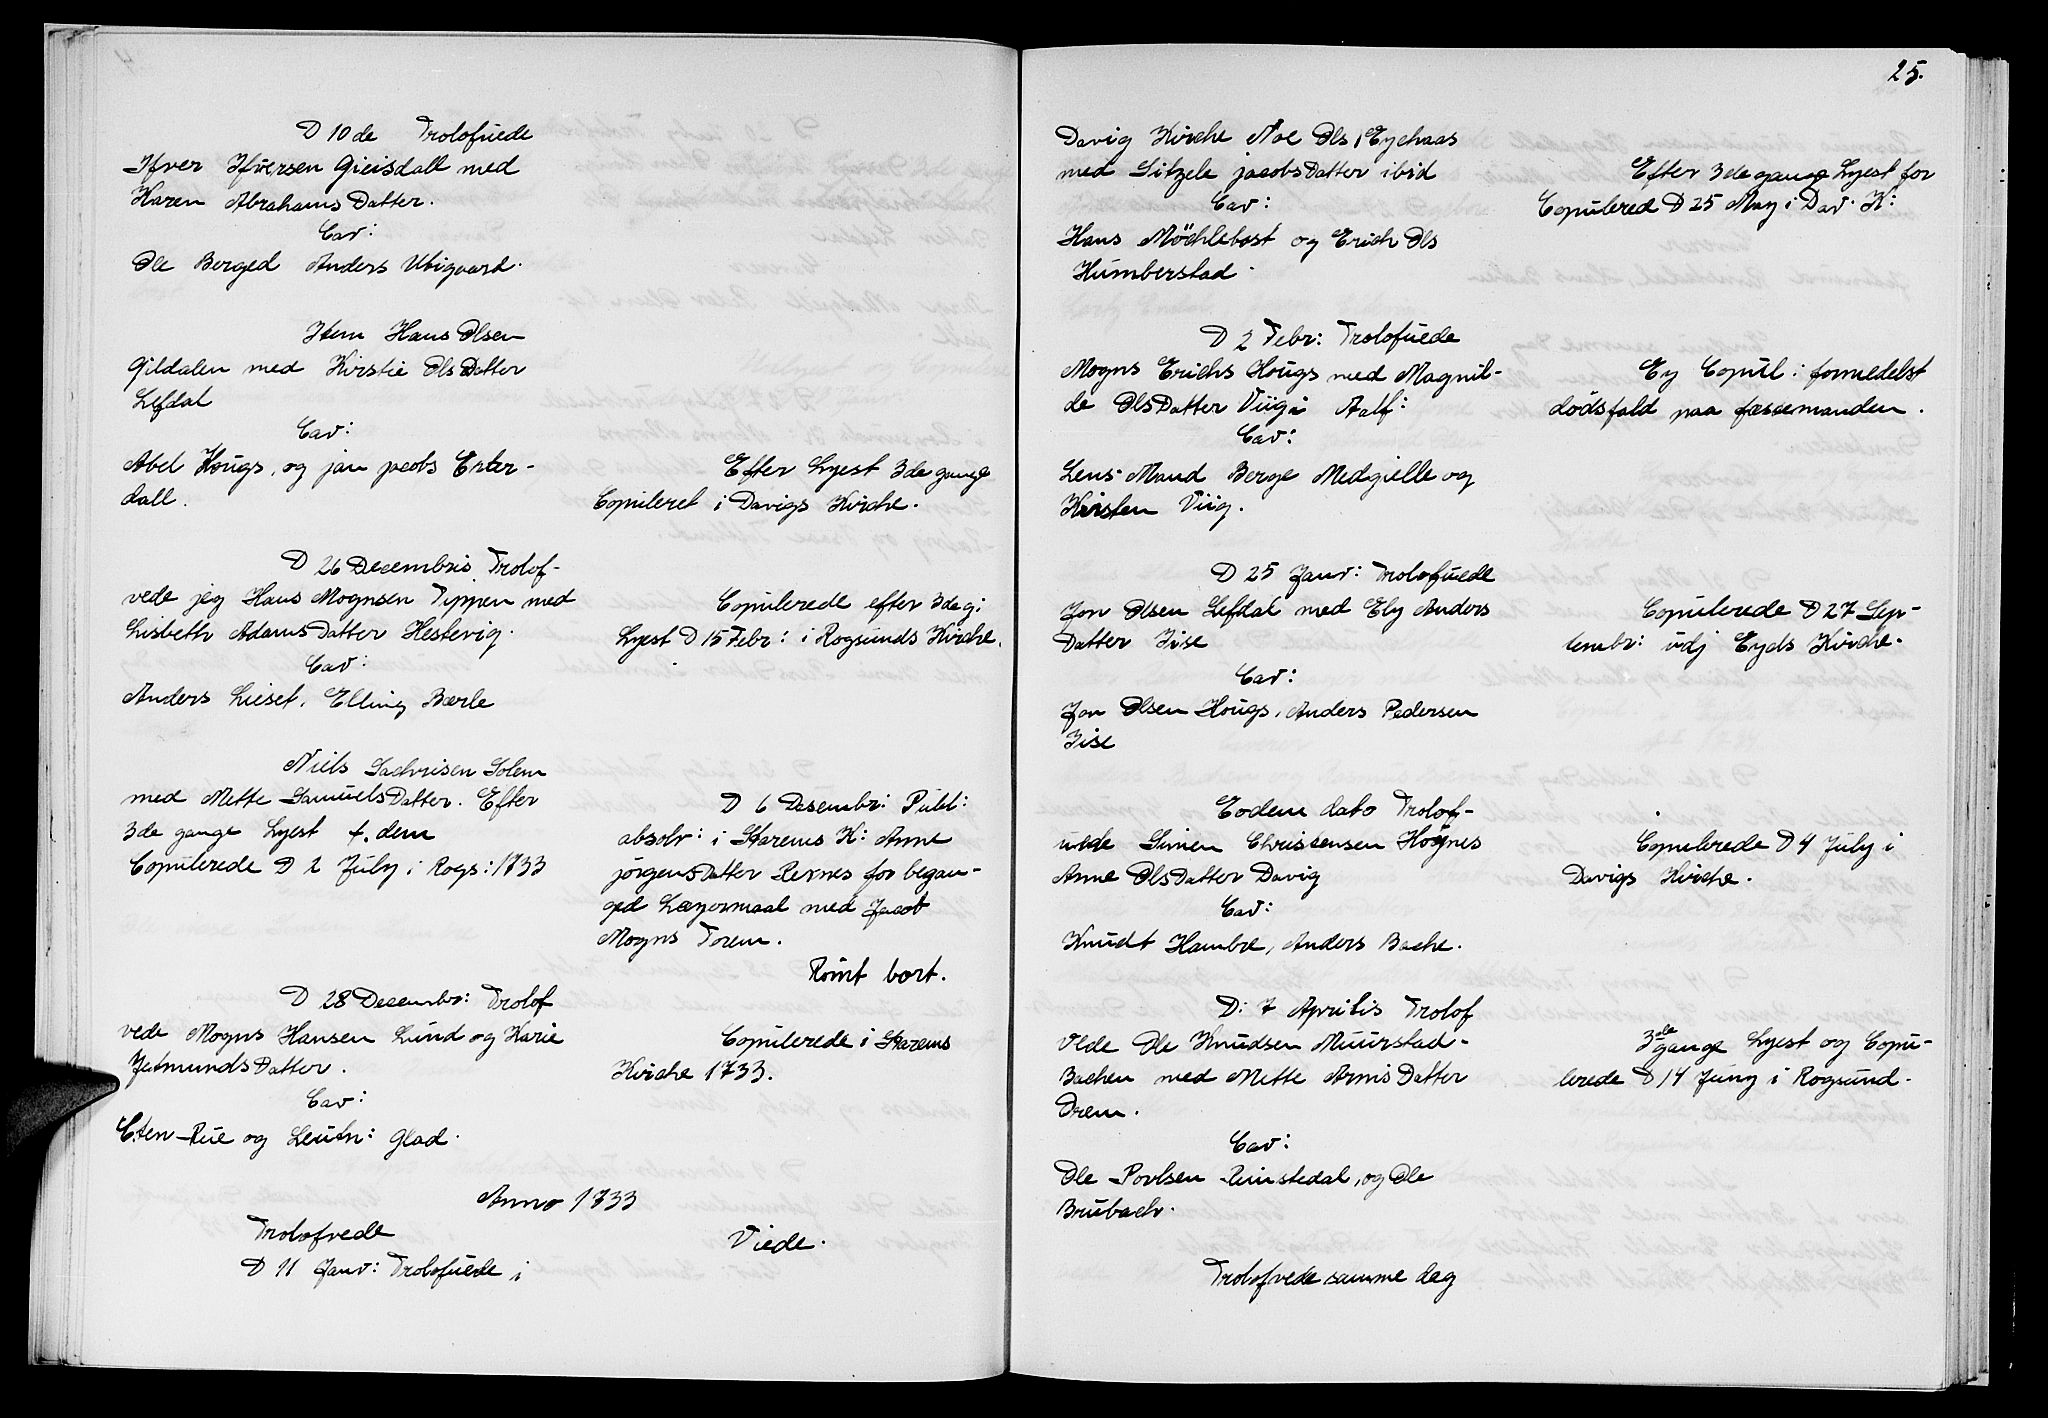 D 10 de Trolofuede
Ifver Ifversen Gieisdall med
Karen Abrahams Datter.
Cav:
Ole Berged Anders Utigaard.
Item Hans Olsen
Gildalen med Kirstie Ols Datter
Lefdal
Cav:
Abel Hougs, og jan jacobs Ester-
dall.
Efter Lyest 3de gange
Copuleret i Davigs Kirche.
D 26 Decembris Trolof-
vede jeg Hans Mognsen Tippen med
Lisbeth Adams Datter Hestevig.
Cav:
Anders Lieset, Elling Bærle
Copulerede efter 3de g:
Lyest D 15 Febr: i Rogsunds Kirche.
Niels Sachrisen Solem
med Mette Samuels Datter. Efter
3de gange Lyest f. dem
Copulerede D 2 July i Rogs: 1733
D 6 Desembr: Publ:
absolv: i Starems K: Anne
jørgens Datter Rexnes for began-
ged Leyermaal med Jacob
Mogns Torem.
Römt bort.
D 28 Desembr: Trolof
vede Mogns Hansen Lund og Karie
Jetmunds Datter.
Cav:
Sten Rue og Leutn: Glad.
Copulerede i Starems
Kirche 1733.
Anno 1733
Trolofvede
Viede.
D 11 Janv: Trolofuede i
25.
Davig Kirche Noe Ols Eyehaas
med Sitzele jacobs Datter ibid
Cav:
Hans Möchlebost og Erich Ols
Humberstad.
Efter 3de gange Lyest for
Copulered D 25 May i Dav. K:
D 2 Febr: Trolofuede
Mogns Erichs Hougs med Magnil-
de Ols Datter Viig i Aalf:
Cav:
Lens-Mand Berge Medgielle og
Kirsten Viig.
Ey Copul: formedelst
dödsfald paa fæstemanden.
D 25 Janv: Trolofuede
Jon Olsen Lefdal med Ely Anders
Datter Iise
Cav:
Jon Olsen Hougs, Anders Pedersen
Iise
Copulerede D 27 Sep-
tembr: udj Eyds Kirche.
Eodem dato Trolof-
uede Simen Christensen Hognes
Anne Ols Datter Davig
Cav:
Knudt Hambre, Anders Bache.
Copulerede D 4 July i
Davigs Kirche.
D: 7 Aprilis Trolof
vede Ole Knudsen Muurstad-
Bachen med Mette Arnis Datter
Orem.
Cav:
Ole Povlsen Rimstedal, og Ole
Brubach.
3de gange Lyest og Copu-
lerede D 14 Juny i Rogsund.
Trolofvede samme dag